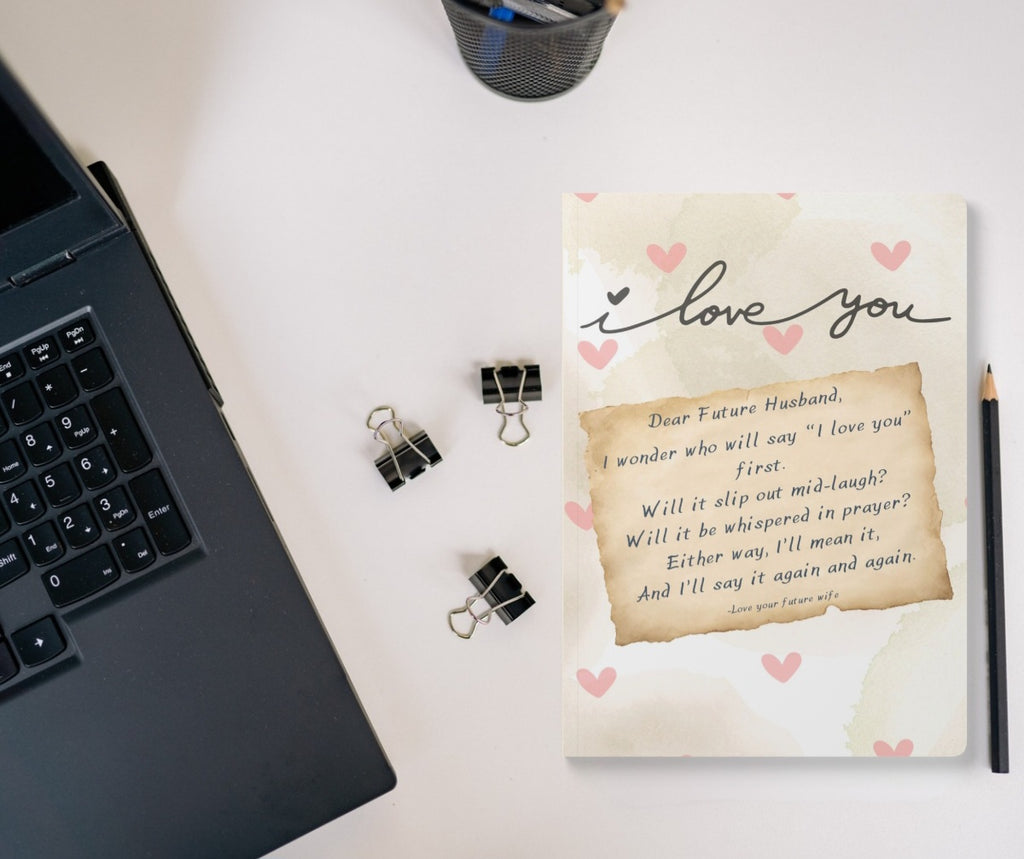 i love you
Dear Future Husband,
I wonder who will say “I love you”
first.
Will it slip out mid-laugh?
Will it be whispered in prayer?
Either way, I'll mean it,
And I'll say it again and again.
-Love your future wife
End
PgUp
PgDn
/
*
-
Home
8
9
PgUp
+
4
5
6
1
End
2
3
PgDn
Enter
Shift
0
Ins
.
Del